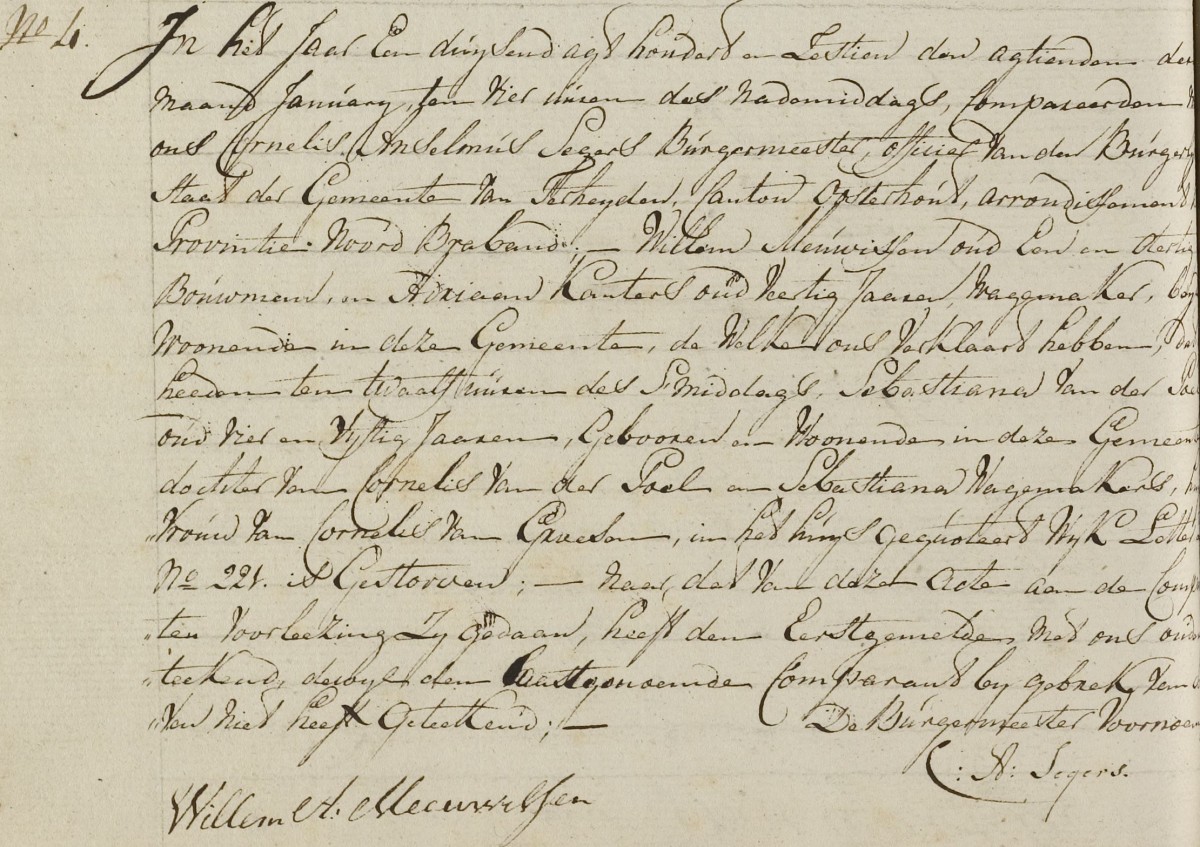 No 4. In het Jaar Een duijsend agt hondert en Zestien den agtienden der
maand January, ten vier uuren des nademiddags, Compareerden
ons Cornelis Anselmus Segers Burgermeester, officier van den Burger
Staat der Gemeente van Terheyden, Canton Oosterhout, arrondissement
Provintie Noord Braband; — Willem Meuwissen oud Een en
Bouwman, en Adriaan Kanters oud Veertig Jaaren, Wagemaker,
Woonende in deze Gemeente, de Welke ons Verklaard hebben, dat
heeden ten twaalf uuren des Smiddags, Sebastiana van der
oud vier en Vyftig Jaaren, Gebooren en Woonende in deze Gemeen
dochter van Cornelis van der Poel en Sebastiana Wagemakers,
Vrouw van Cornelis van Gruesen, in het huys gequoteerd Wyk Letter
No 221. is Gestorven; — naar dat van deze Acte aan de Comp
„ten Voorleezing Zy gedaan, heeft den Eerstgemelde met ons onder
„teekend, dewyl den laastgenoemde Comparant by gebrek van
„ven niet heeft Geteekend; — De Burgermeester Voornoem
C: A: Segers.
Willem A: Meeuwissen